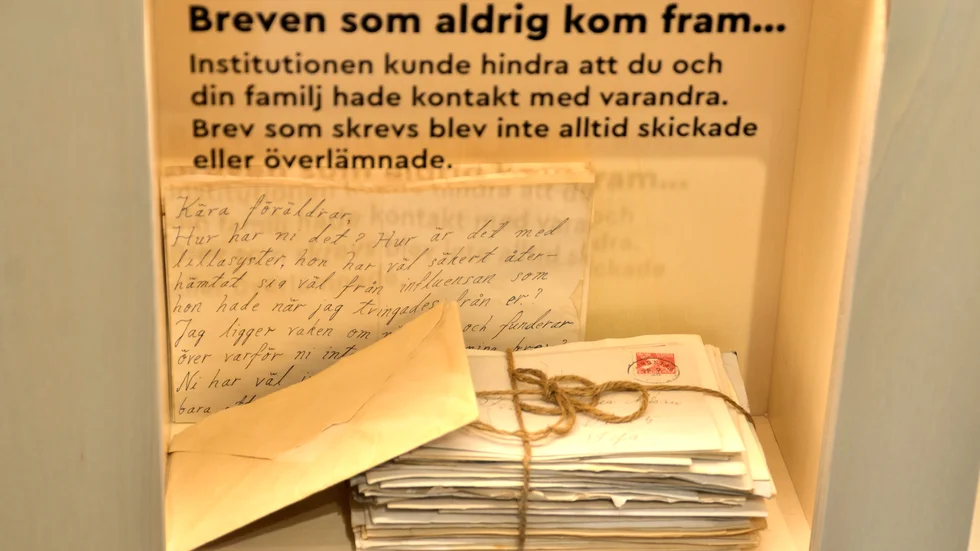 Breven som aldrig kom fram...
Institutionen kunde hindra att du och
din familj hade kontakt med varandra.
Brev som skrevs blev inte alltid skickade
eller överlämnade.
Kära föräldrar,
Hur har ni det? Hur är det med
lillasyster, hon har väl säkert åter-
hämtat sig väl från influensan som
hon hade när jag tvingades från er?
Jag ligger vaken om och funderar
över varför ni
Ni har väl
bara